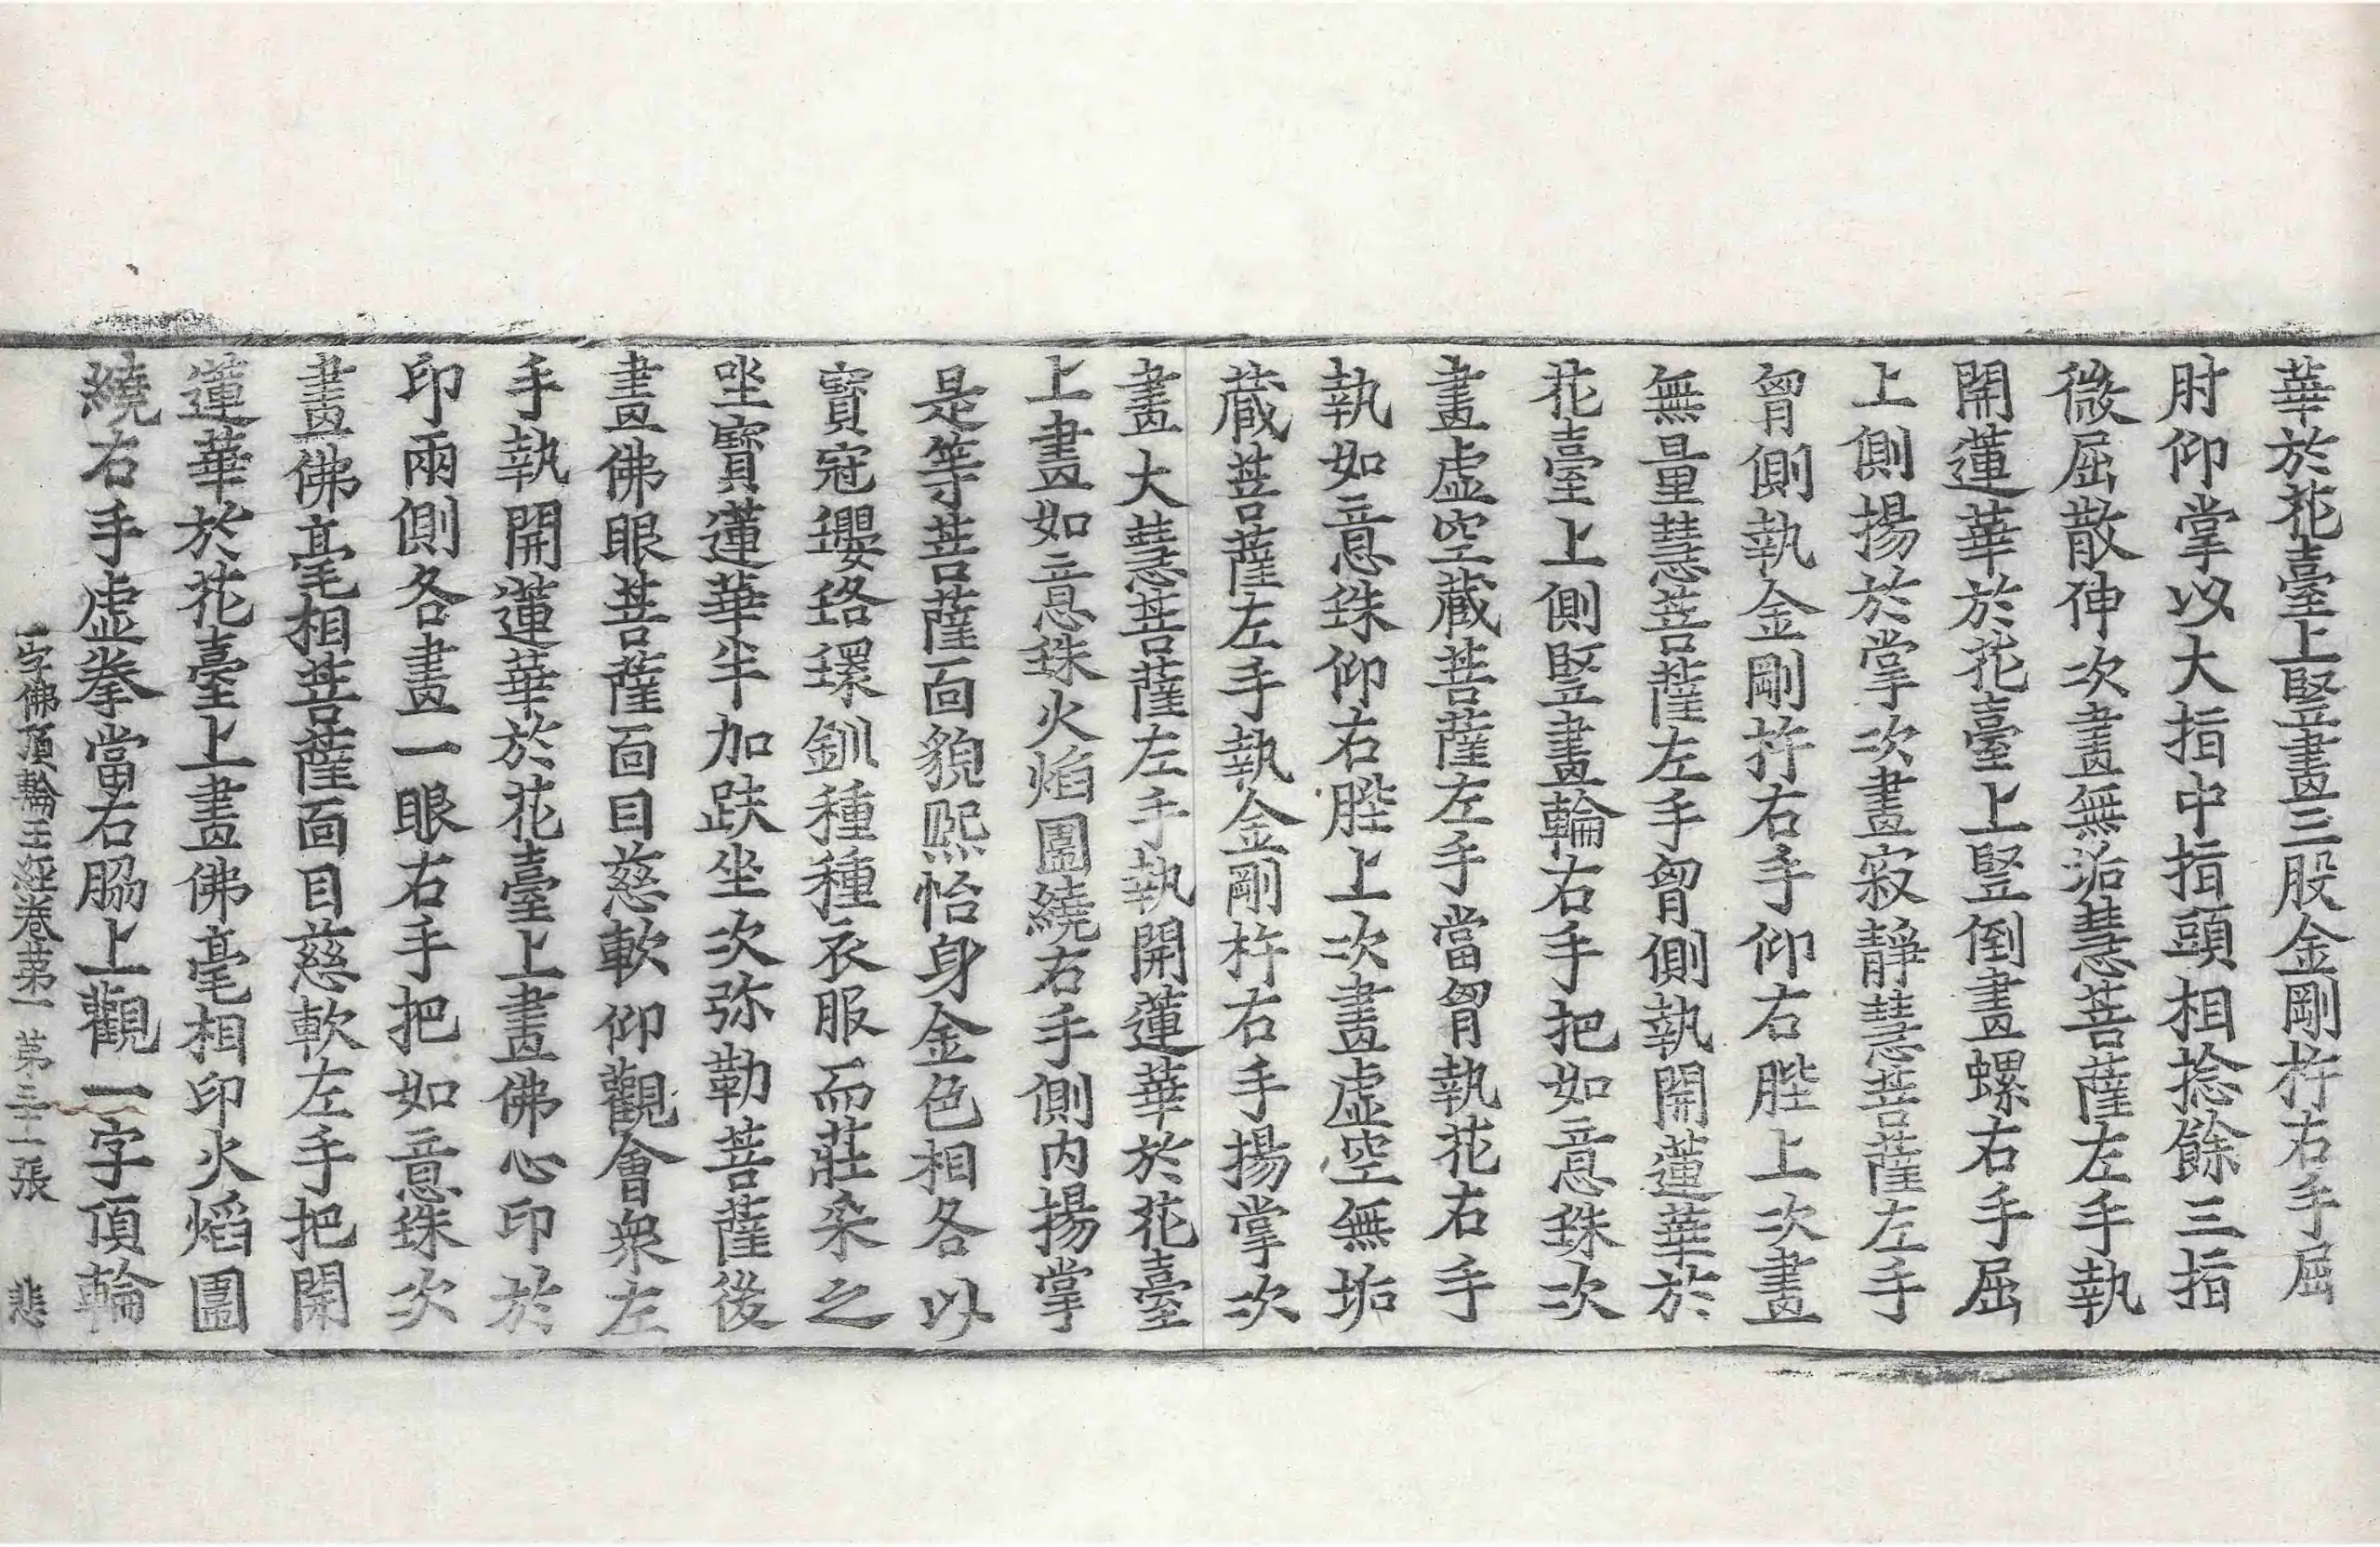 華於花臺上竪畫三股金剛杵右手屈
肘仰掌以大指中指頭相捻餘三指
微屈散伸次畫無垢慧菩薩左手執
開蓮華於花臺上竪倒畫螺右手屈
上側揚於掌次畫寂靜慧菩薩左手
胷側執金剛杵右手仰右䏶上次畫
無量慧菩薩左手胷側執開蓮華於
花臺上側竪畫輪右手把如意珠次
畫虛空藏菩薩左手當胷執花右手
執如意珠仰右䏶上次畫虛空無垢
藏菩薩左手執金剛杵右手揚掌次
畫大慧菩薩左手執開蓮華於花臺
上畫如意珠火焰圍繞右手側內揚掌
是等菩薩面貌熙怡身金色相各以
寶冠瓔珞環釧種種衣服而莊朶之
坐寶蓮華半加趺坐次弥勒菩薩後
畫佛眼菩薩面目慈軟仰觀會衆左
手執開蓮華於花臺上畫佛心印於
印兩側各畫一眼右手把如意珠次
畫佛毫相菩薩面目慈軟左手把開
蓮華於花臺上畫佛毫相印火焰圍
繞右手虛拳當右脇上觀一字頂輪
一字佛頂輪王經卷第一 第三十一張 悲